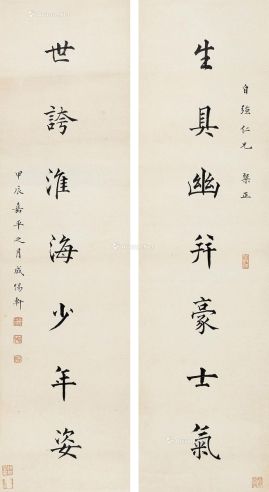 自強仁兄 槼正
生具幽并豪士氣
世誇淮海少年姿
甲辰嘉平之月成惕軒